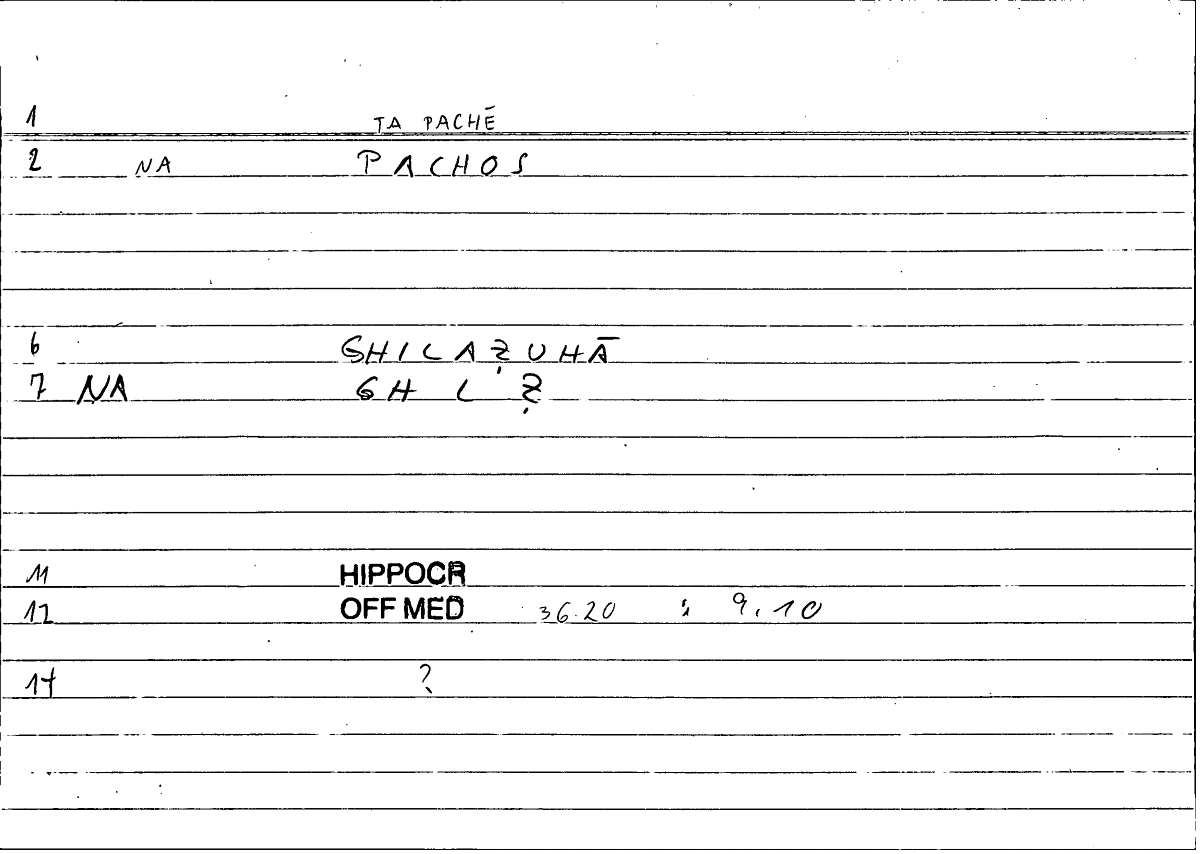 1 TA PACHĒ
2 NA PACHOS
6 GHILAẒUHĀ
7 NA GH L Ẓ
11 HIPPOCR
12 OFF MED 36.20 ; 9.10
14 ?